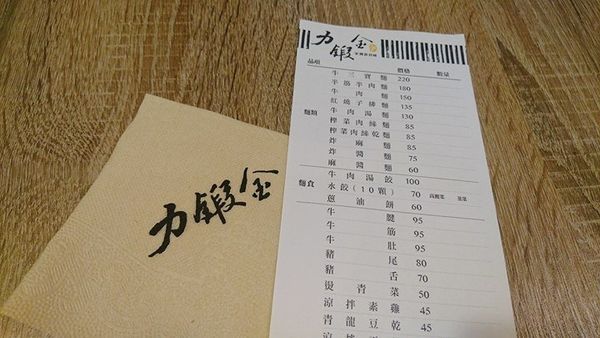 金鍛力
力鍛金
品項 價格 數量
麵類
牛三寶麵 220
半筋半肉麵 180
牛肉麵 150
紅燒子排麵 135
牛肉湯麵 130
榨菜肉絲麵 85
榨菜肉絲乾麵 85
炸麻麵 85
炸醬麵 75
麻醬麵 60
麵食
牛肉湯餃 100
水餃(10顆) 70 高麗菜 韮菜
蔥油餅 60
牛腱 95
牛筋 95
牛肚 95
豬尾 80
豬舌 70
燙青菜 50
涼拌素雞 45
青龍豆乾 45